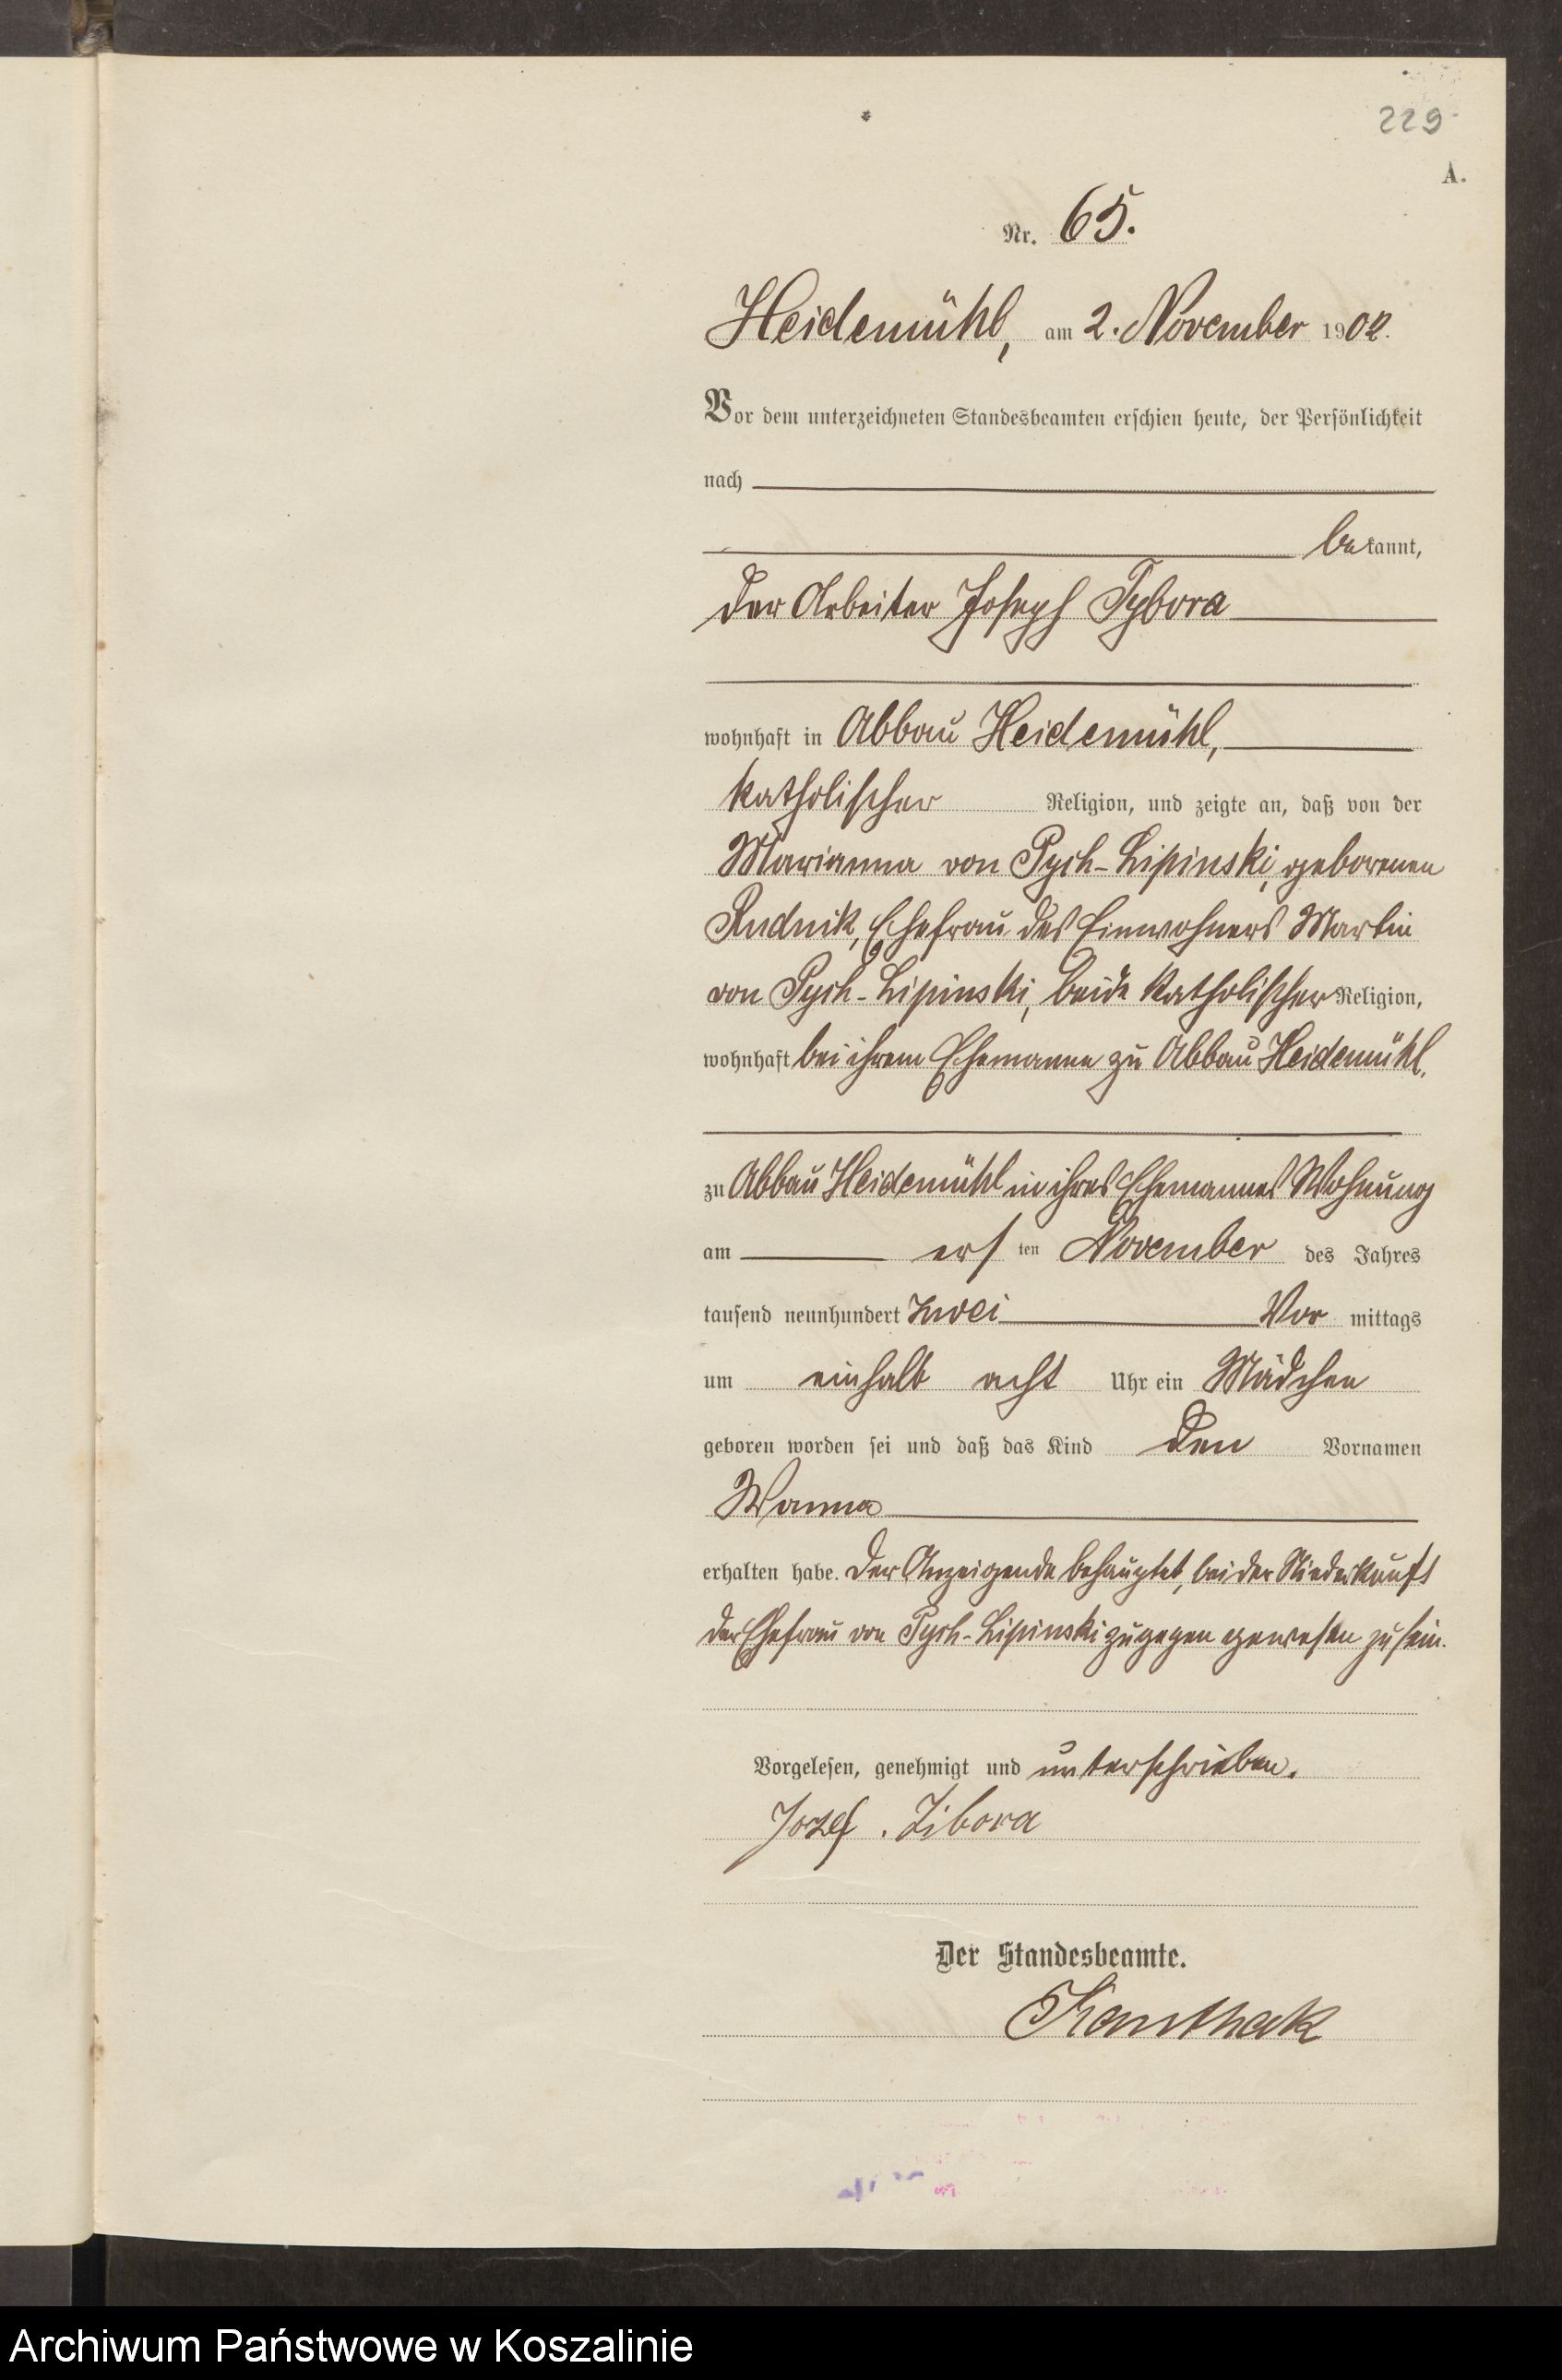 229
A.
Nr. 65.
Heidemühl, am 2. November 1902.
Vor dem unterzeichneten Standesbeamten erschien heute, der Persönlichkeit
nach
bekannt,
der Arbeiter Joseph Tybora
wohnhaft in Abbau Heidemühl,
katholischer Religion, und zeigte an, daß von der
Marianna von Pych-Lipinski, geborenen
Rudnik, Ehefrau des Einwohners Martin
von Pych-Lipinski, beide katholischer Religion,
wohnhaft bei ihrem Ehemanne zu Abbau Heidemühl,
zu Abbau Heidemühl in ihres Ehemannes Wohnung
am ersten November des Jahres
tausend neunhundert zwei Vor mittags
um einhalb acht Uhr ein Mädchen
geboren worden sei und daß das Kind den Vornamen
Wanna
erhalten habe. Der Anzeigende behauptet, bei der Niederkunft
der Ehefrau von Pych-Lipinski zugegen gewesen zu sein.
Vorgelesen, genehmigt und unterschrieben.
Jozef. Zibora
Der Standesbeamte.
Archiwum Państwowe w Koszalinie